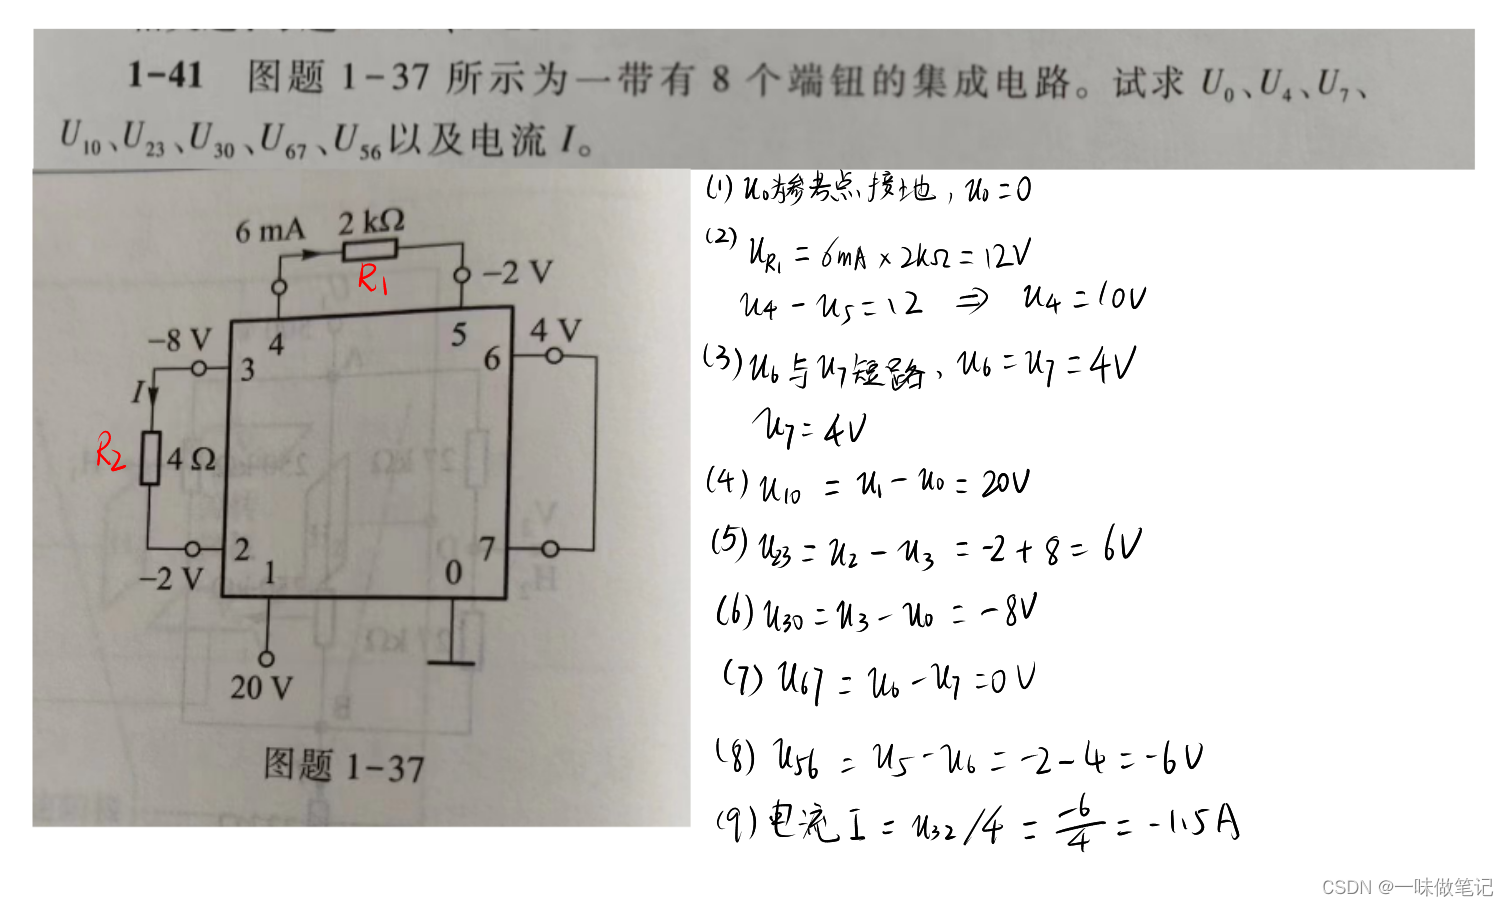 1-41 图题 1-37 所示为一带有 8 个端钮的集成电路。试求 U₀、U₄、U₇、
U₁₀、U₂₃、U₃₀、U₆₇、U₅₆以及电流 I。
6 mA
2 kΩ
R₁
-2 V
-8 V
4
5
4 V
3
6
I
R₂
4 Ω
2
7
-2 V
1
0
20 V
图题 1-37
(1) u₀为参考点接地, u₀=0
(2) u_R₁ = 6mA × 2kΩ = 12V
u₄ - u₅ = 12 ⇒ u₄ = 10V
(3) u₆与u₇短路, u₆ = u₇ = 4V
u₇ = 4V
(4) u₁₀ = u₁ - u₀ = 20V
(5) u₂₃ = u₂ - u₃ = -2 + 8 = 6V
(6) u₃₀ = u₃ - u₀ = -8V
(7) u₆₇ = u₆ - u₇ = 0V
(8) u₅₆ = u₅ - u₆ = -2 - 4 = -6V
(9) 电流 I = u₃₂/4 = -6/4 = -1.5A
CSDN @一味做笔记